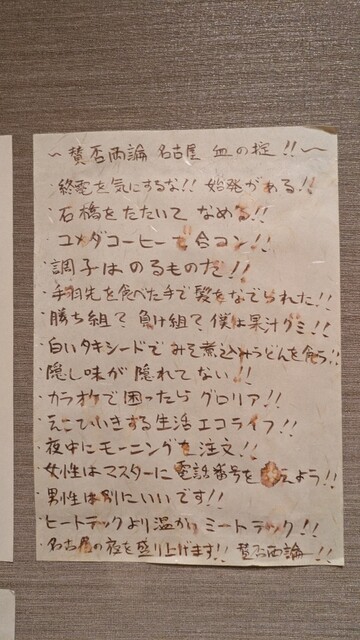 ～賛否両論 名古屋 血の掟!!～
・終電を気にするな!! 始発がある!!
・石橋をたたいて なめる!!
・コメダコーヒーで合コン!!
・調子はのるものだ!!
・手羽先を食べた手で髪をなでられた!!
・勝ち組? 負け組? 僕は果汁グミ!!
・白いタキシードで みそ煮込みうどんを食う!!
・隠し味が 隠れてない!!
・カラオケで困ったら グロリア!!
・えこひいきする生活 エコライフ!!
・夜中にモーニングを注文!!
・女性はマスターに電話番号を えよう!!
・男性は別にいいです!!
・ヒートテックより温かい ミートテック!!
・名古屋の夜を盛り上げます!! 賛否両論ー!!